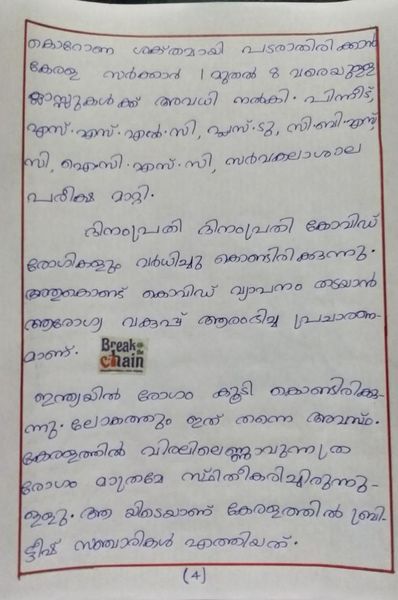 കൊറോണ ശക്തമായി പടരാതിരിക്കാൻ
കേരള സർക്കാർ 1 മുതൽ 8 വരെയുള്ള
ക്ലാസ്സുകൾക്ക് അവധി നൽകി. പിന്നീട്,
എസ്.എസ്.എൽ.സി, പ്ലസ്.ടു, സി.ബി.എസ്,
സി, ഐ.സി.എസ്.സി, സർവകലാശാല
പരീക്ഷ മാറ്റി.
ദിനംപ്രതി ദിനംപ്രതി കോവിഡ്
രോഗികളും വർധിച്ചു കൊണ്ടിരിക്കുന്നു.
അതുകൊണ്ട് കൊവിഡ് വ്യാപനം തടയാൻ
ആരോഗ്യ വകുപ്പ് ആരംഭിച്ച പ്രചാരണ-
മാണ്. Break the chain
ഇന്ത്യയിൽ രോഗം കൂടി കൊണ്ടിരിക്കു-
ന്നു. ലോകത്തും ഇത് തന്നെ അവസ്ഥ.
കേരളത്തിൽ വിരലിലെണ്ണാവുന്നത്ര
രോഗം മാത്രമേ സ്ഥിതീകരിച്ചിരുന്നു-
ള്ളു. ആ യിടെയാണ് കേരളത്തിൽ ബ്രി-
ട്ടീഷ് സഞ്ചാരികൾ എത്തിയത്.
(4)